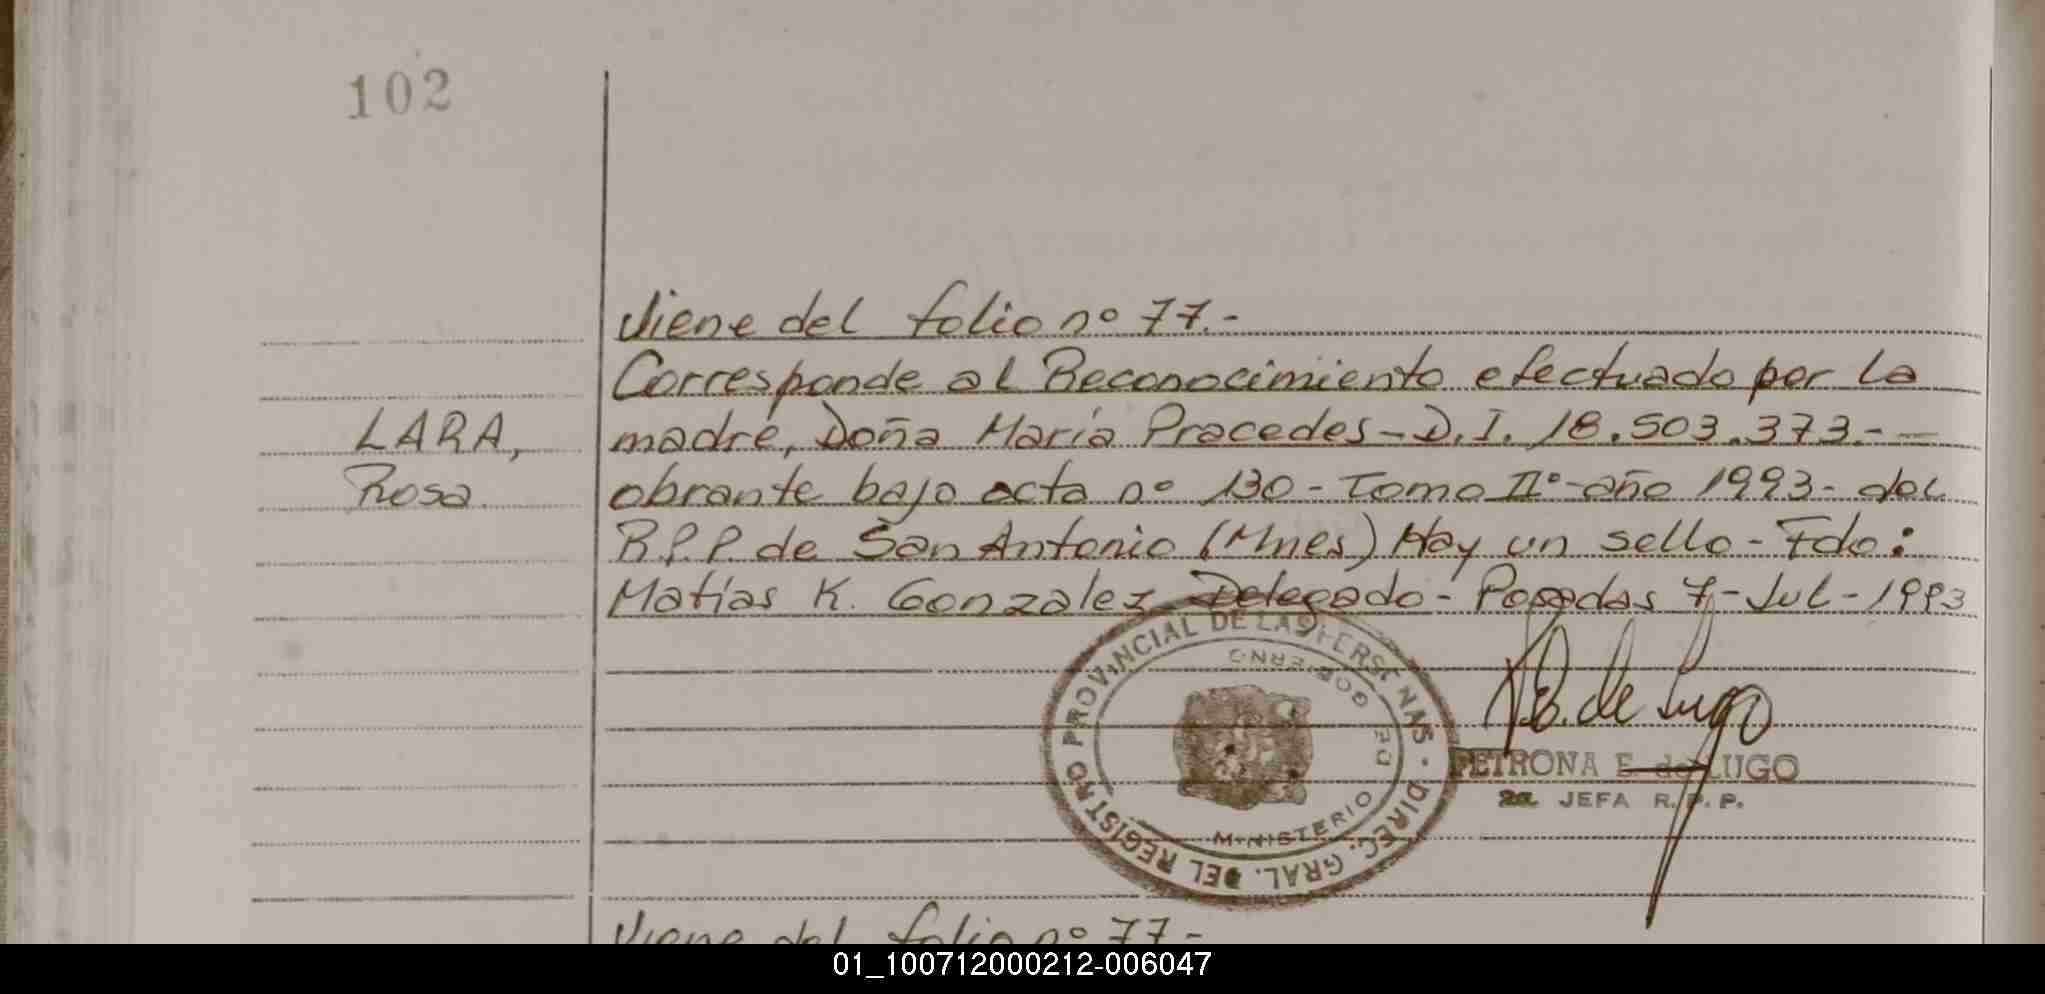 102
Viene del folio nº 77.-
Corresponde al Reconocimiento efectuado por la
LARA, madre, Doña María Pracedes - D.I. 18.503.373.- -
Rosa obrante bajo acta nº 130 - Tomo IIº - año 1993 - del
R.P.P. de San Antonio (Mnes) Hay un sello - Fdo:
Matías K. Gonzalez Delegado - Posadas 7 - Jul - 1993
DIREC. GRAL. DEL REGISTRO PROVINCIAL DE LAS PERSONAS
MINISTERIO DE GOBIERNO
P.E. de Lugo
PETRONA E. de LUGO
2a. JEFA R.P.P.
Viene del folio nº 77-
01_100712000212-006047